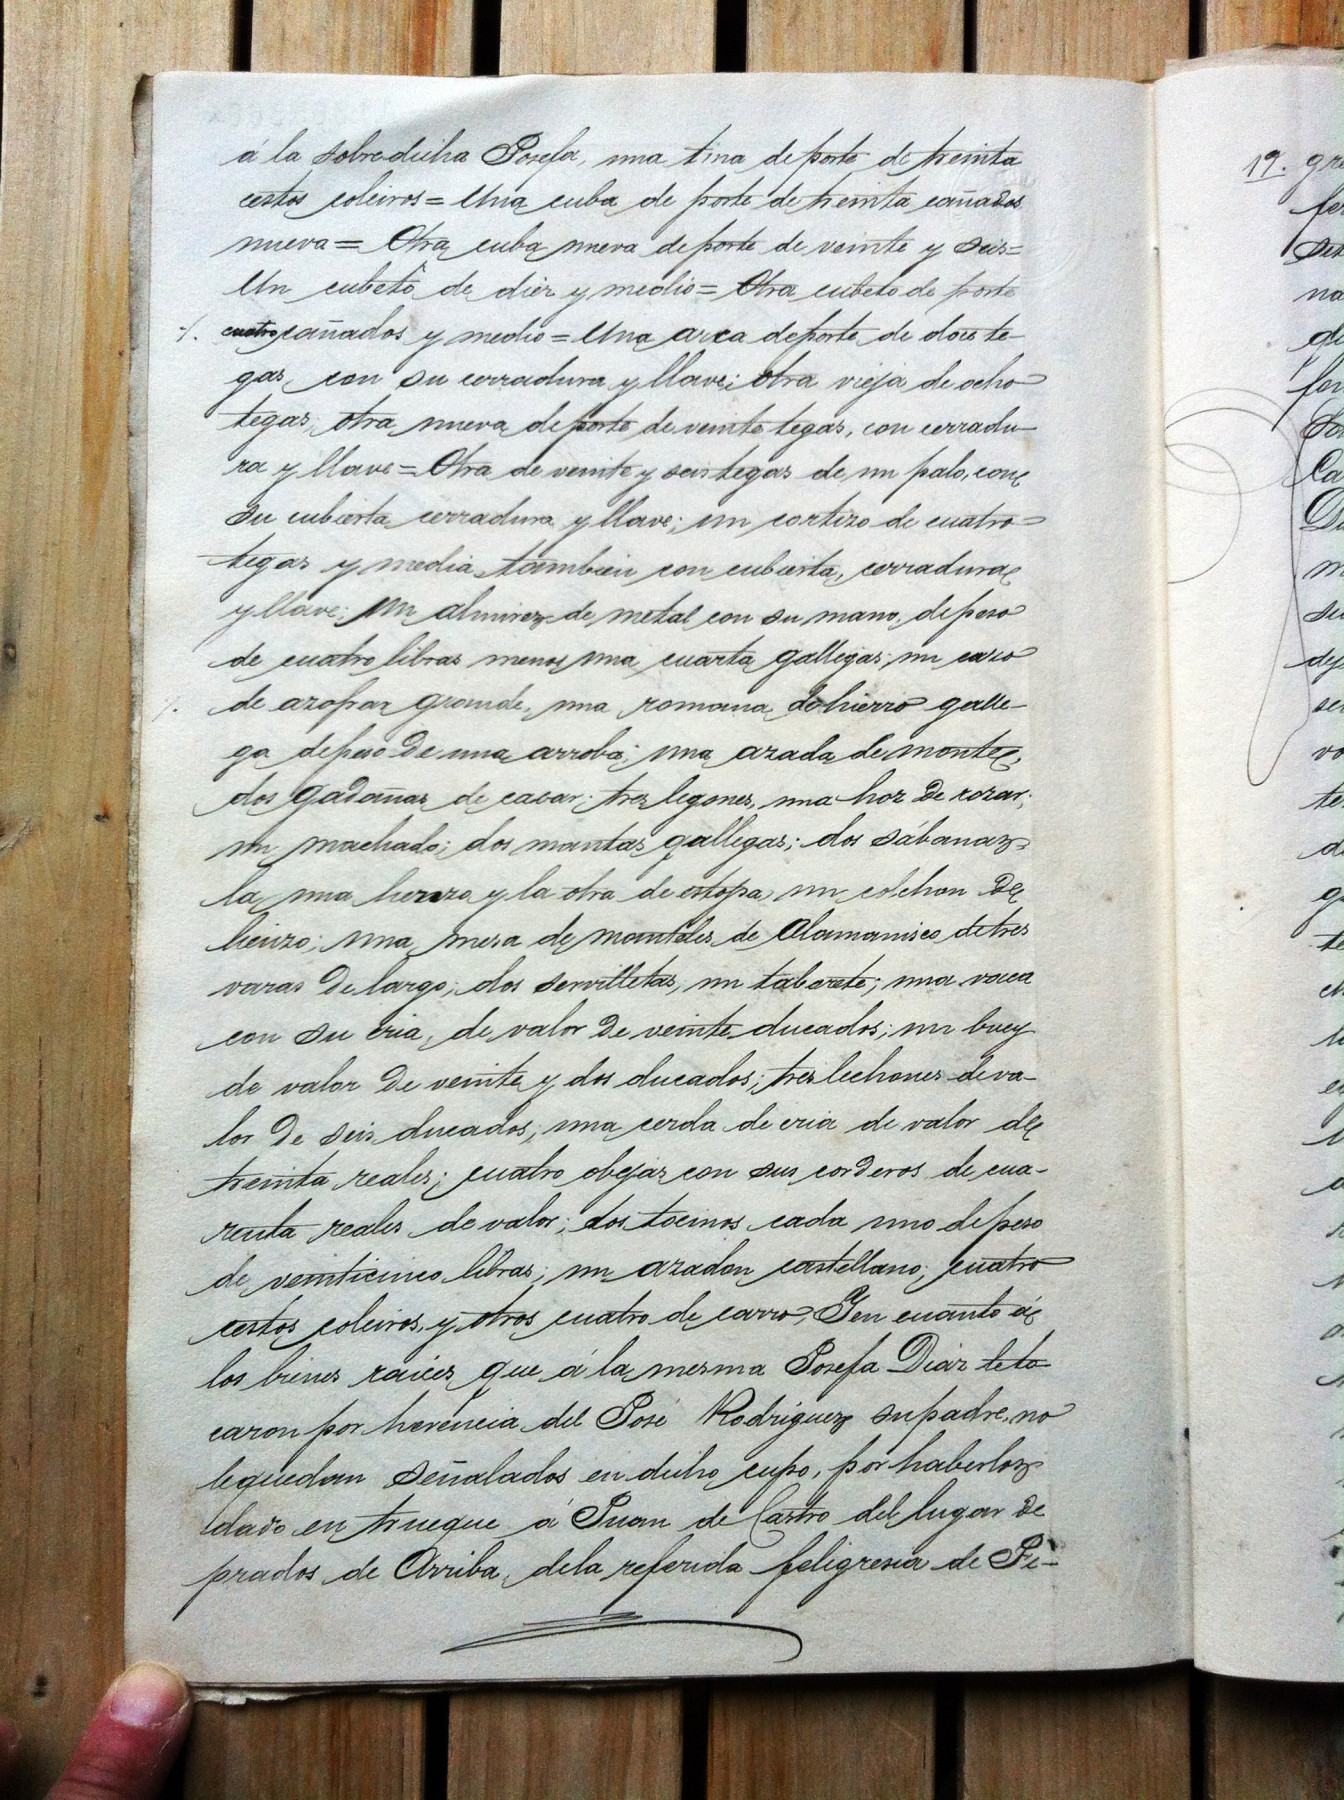 á la sobredicha Josefa, una tina de porte de treinta
cestos coleiros = Una cuba de porte de treinta cañados
nueva = Otra cuba nueva de porte de veinte y seis =
Un cubeto de diez y medio = Otra cubeto de porte
cuatro cañados y medio = Una arca de porte de doce te-
gas con su cerradura y llave; otra vieja de ocho
tegas, otra nueva de porte de veinte tegas, con cerradu-
ra y llave = Otra de veinte y seis tegas de un palo, con
su cubierta cerradura y llave; un cortizo de cuatro
tegas y media tambien con cubierta, cerradura
y llave; Un almirez de metal con su mano, de peso
de cuatro libras menos una cuarta gallegas; un cazo
de azofar grande, una romana de hierro galle-
ga de peso de una arroba; una azada de monte,
dos gadañas de casar; tres legones, una hoz de rozar;
un machado; dos mantas gallegas; dos sábanas
la una lienzo y la otra de estopa, un colchon de
lienzo; una mesa de manteles de Alamanisco de tres
varas de largo; dos servilletas, un taburete; una vaca
con su cria, de valor de veinte ducados; un buey
de valor de veinte y dos ducados; tres lechones de va-
lor de seis ducados; una cerda de cria de valor de
treinta reales; cuatro obejas con sus corderos de cua-
renta reales de valor; dos tocinos cada uno de peso
de veinticinco libras; un azadon castellano; cuatro
cestos coleiros, y otros cuatro de carro. Y en cuanto á
los bienes raices que á la mesma Josefa Diaz le to-
caron por herencia del José Rodriguez su padre, no
le quedan señalados en dicho cupo, por haberlos
dado en trueque á Juan de Castro del lugar de
prados de Arriba, de la referida feligresia de Pi-
19.